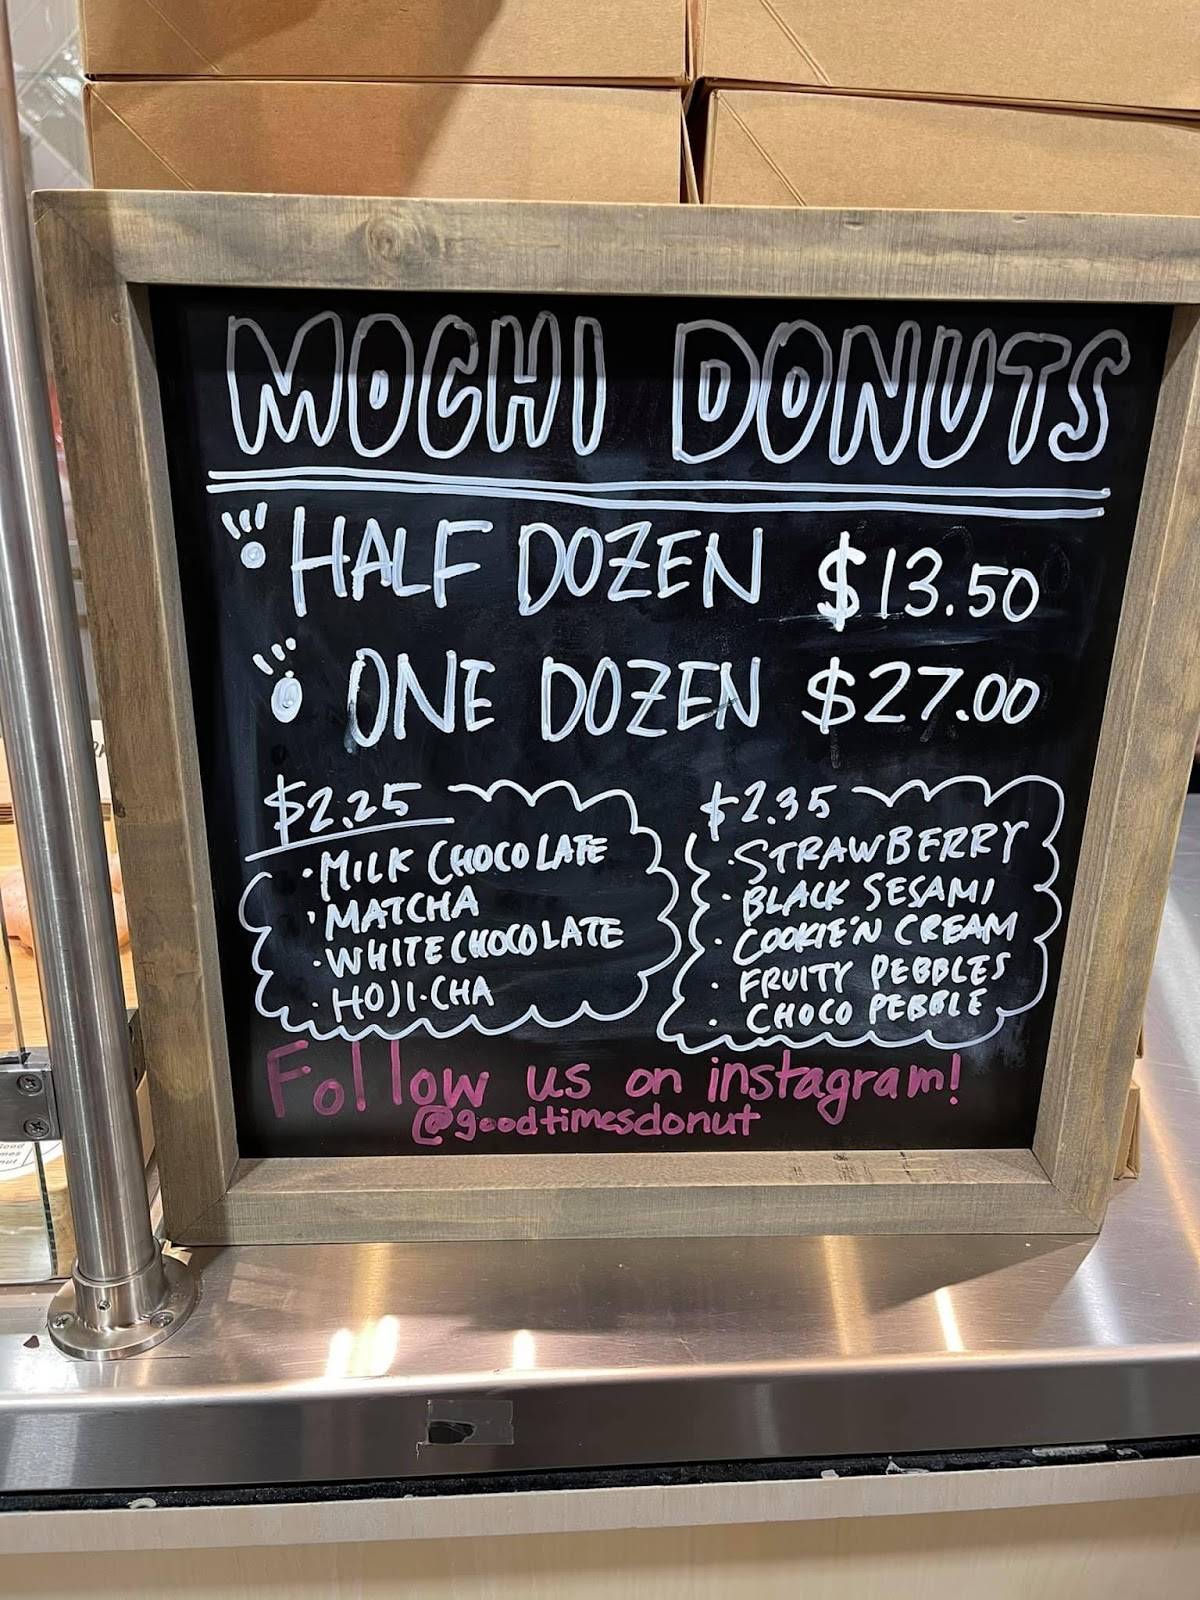 MOCHI DONUTS
HALF DOZEN $13.50
ONE DOZEN $27.00
$2.25
· MILK CHOCOLATE
· MATCHA
· WHITE CHOCOLATE
· HOJI·CHA
$2.35
· STRAWBERRY
· BLACK SESAMI
· COOKIE'N CREAM
· FRUITY PEBBLES
· CHOCO PEBBLE
Follow us on instagram!
@goodtimesdonut